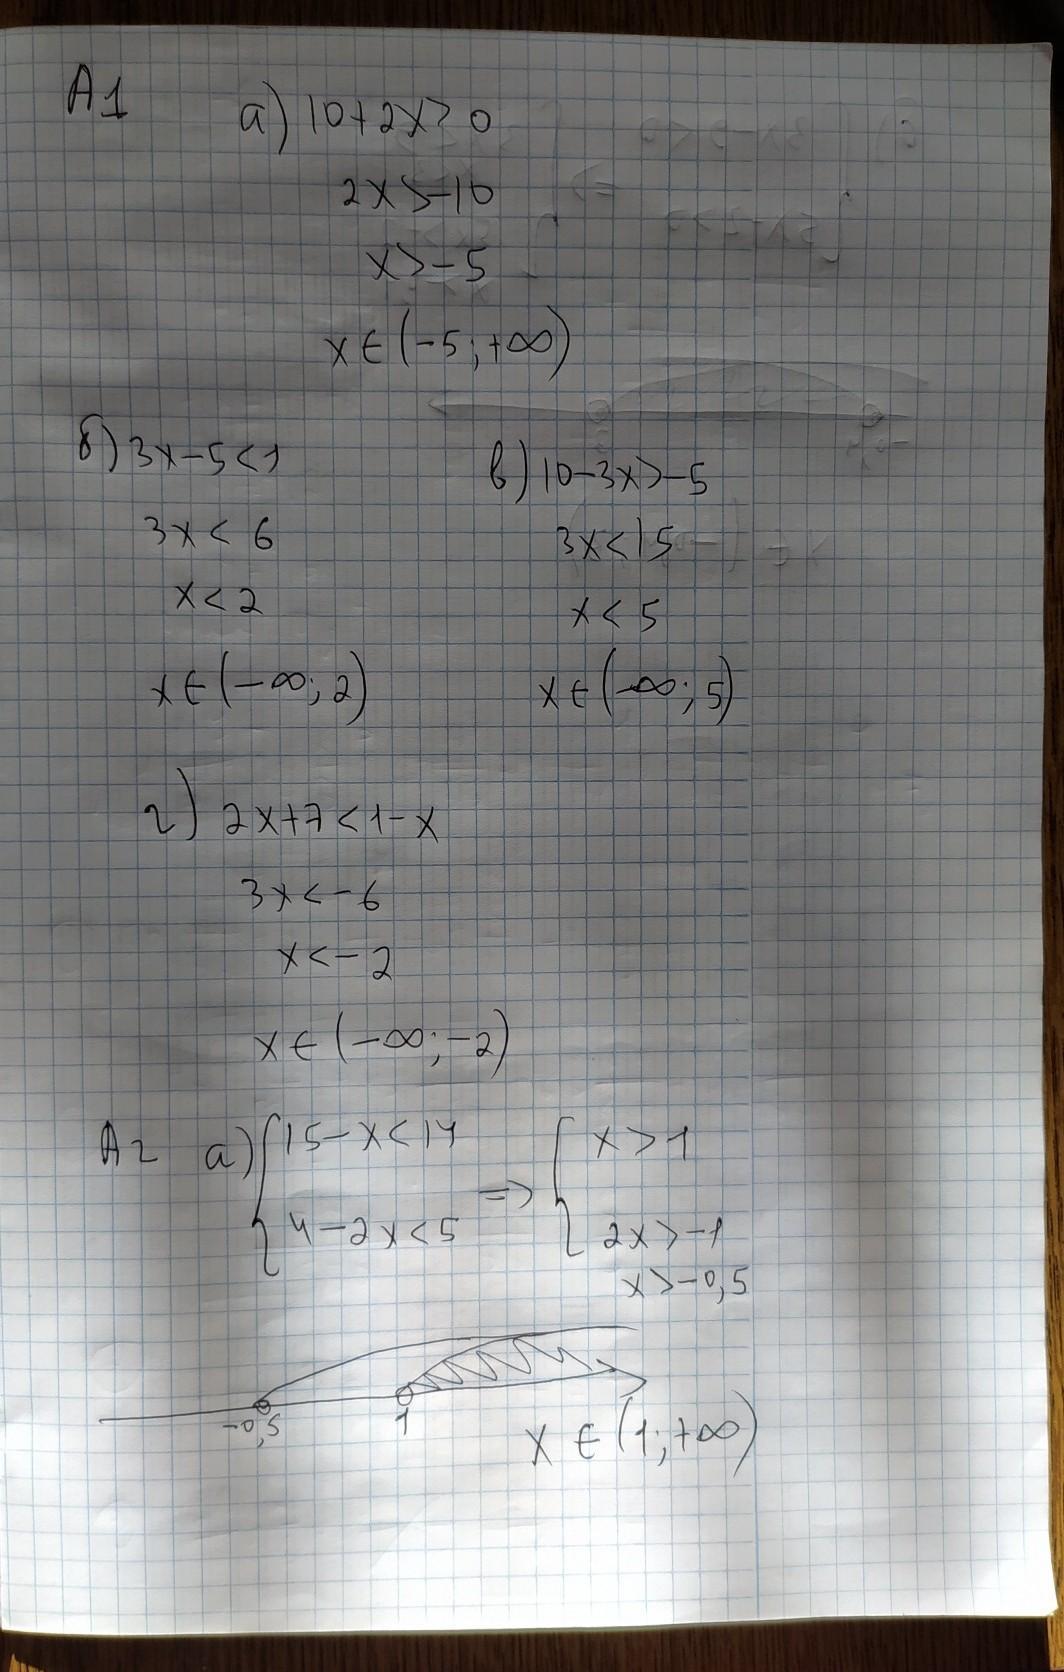 А1
а) 10+2x>0
2x>-10
x>-5
x∈(-5;+∞)
б) 3x-5<1
3x<6
x<2
x∈(-∞;2)
в) 10-3x>-5
3x<15
x<5
x∈(-∞;5)
г) 2x+7<1-x
3x<-6
x<-2
x∈(-∞;-2)
А2 а) { 15-x<14
4-2x<5
=> { x>1
2x>-1
x>-0,5
-0,5 1
x∈(1;+∞)